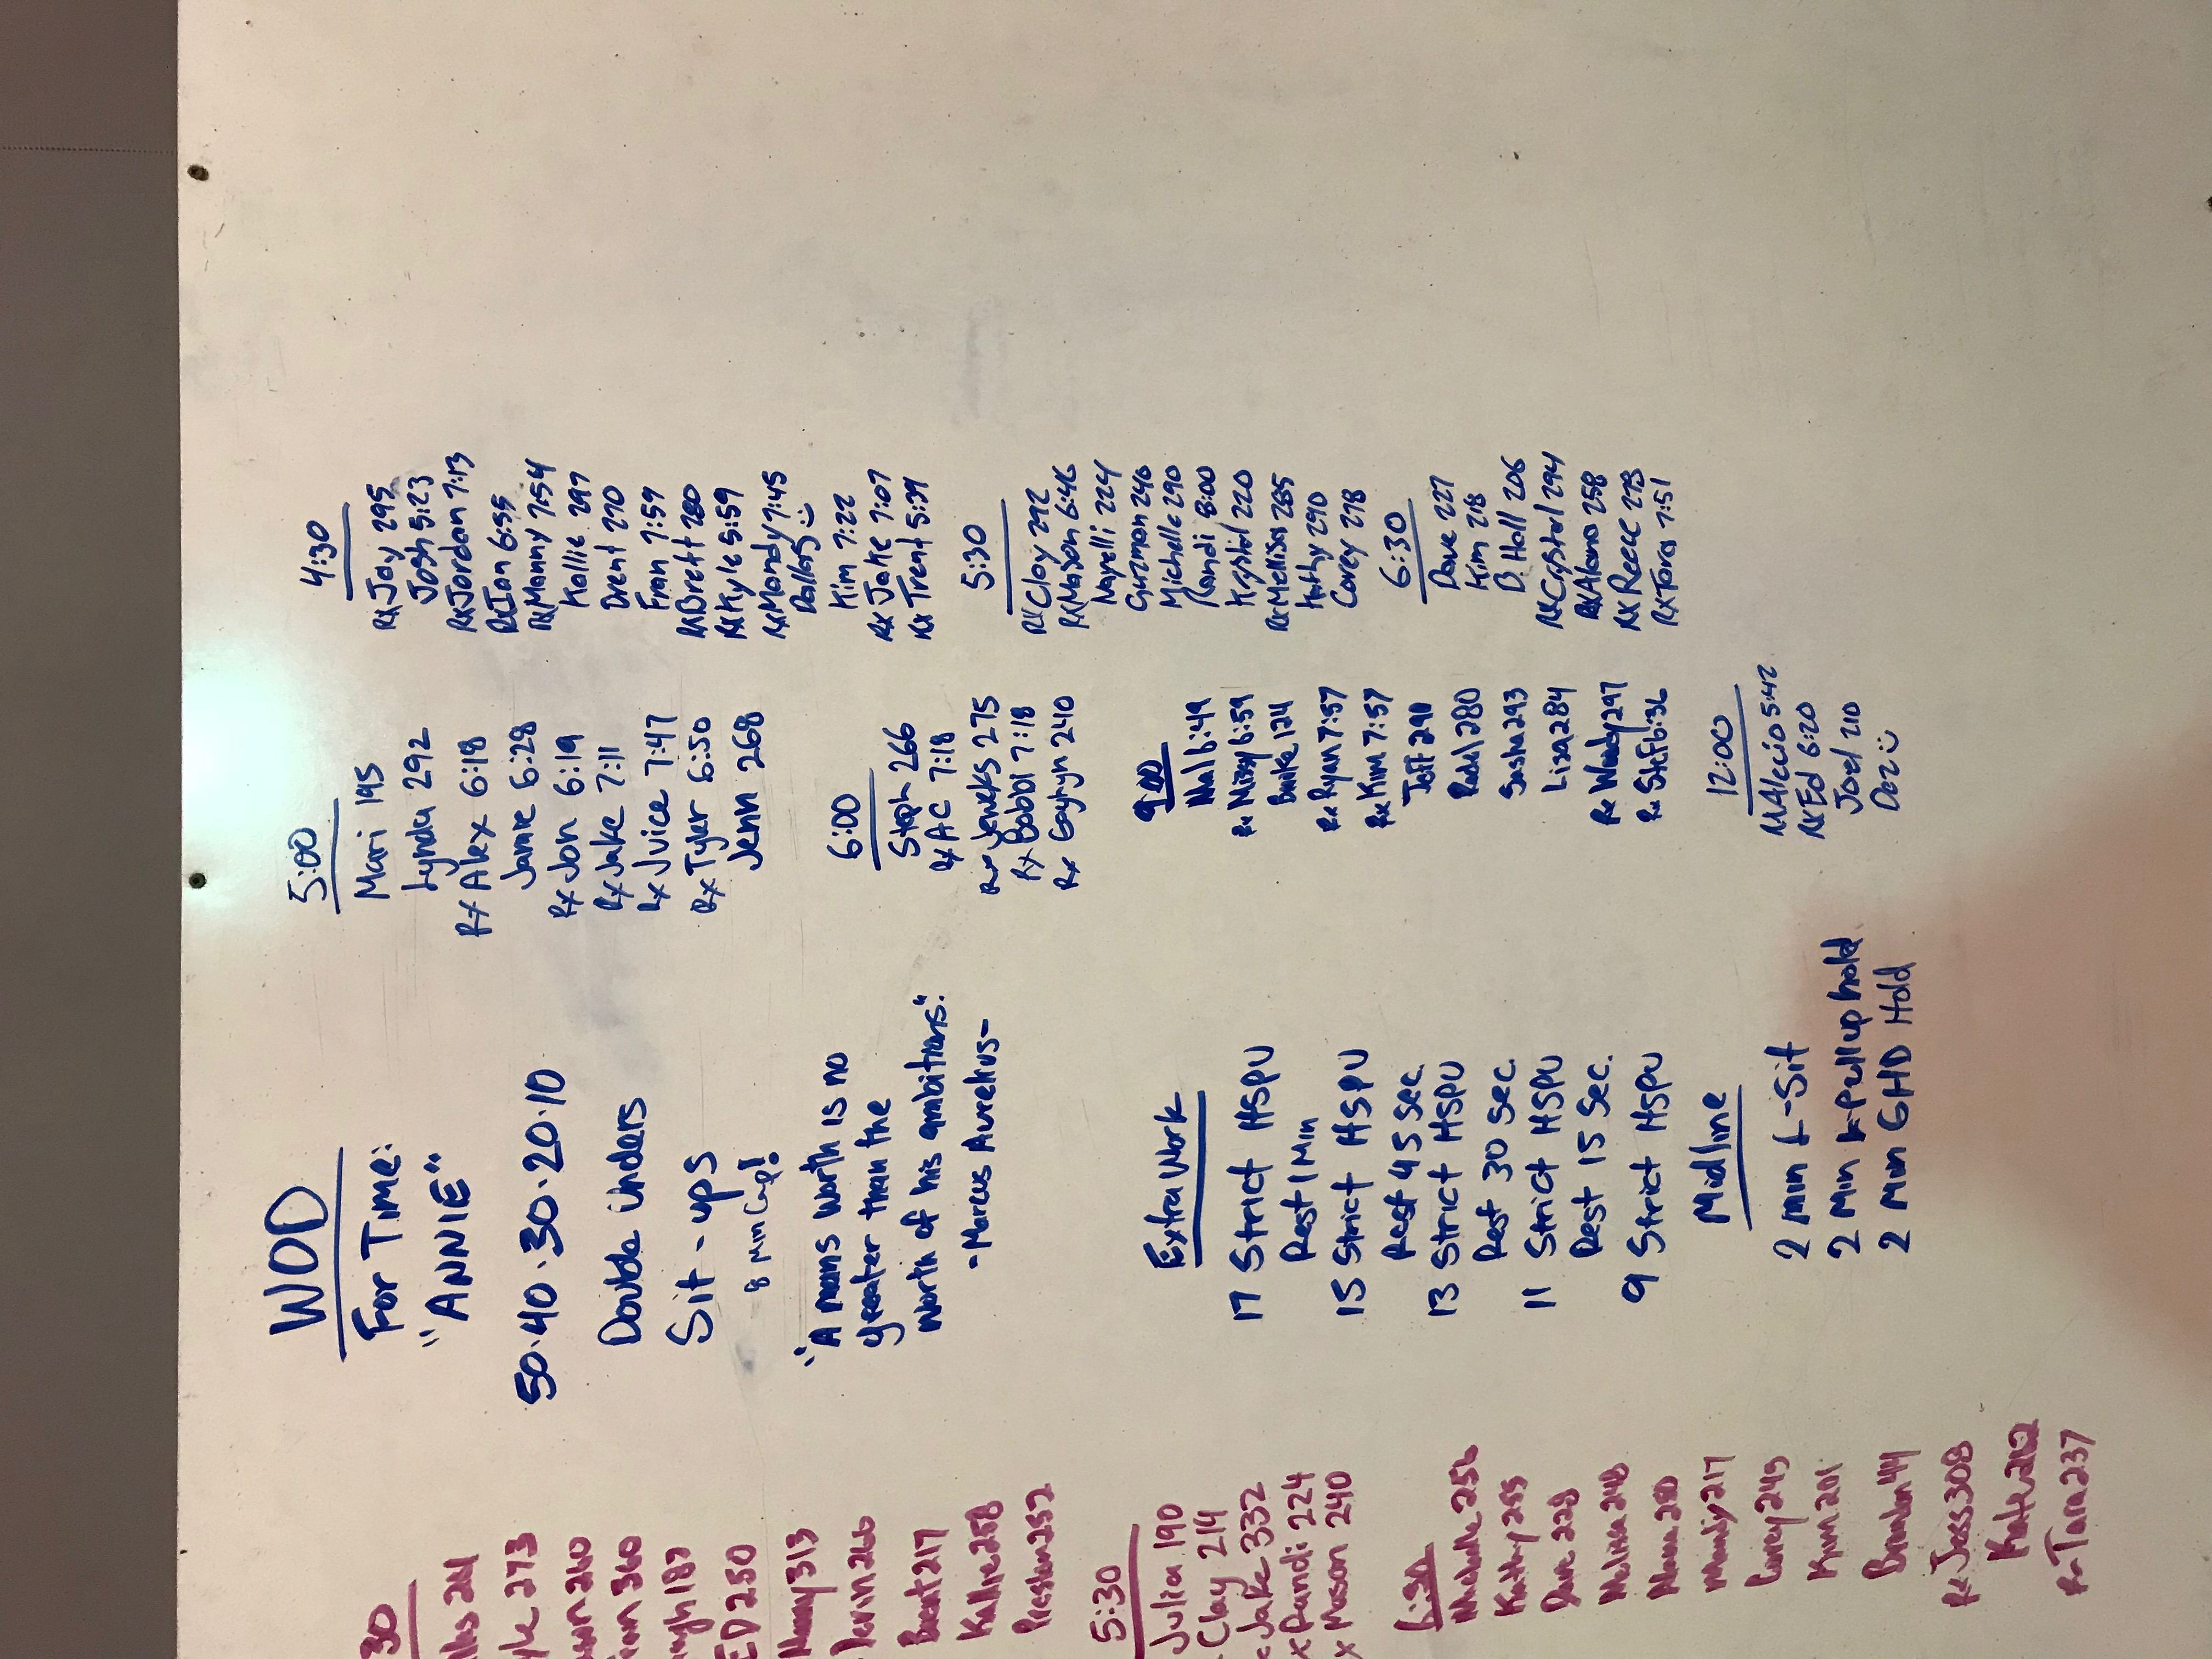 30
241
273
260
360
187
ED 250
Manny 313
266
Brent 217
Kallie 258
Preston 252
5:30
Julia 190
Clay 214
Jake 332
x Randi 224
x Mason 240
6:30
Michelle 256
Kathy 255
Dave 228
Melissa 248
Alana 280
Mandy 217
Corey 245
Kim 201
Brandon 144
Rx Jess 308
Katie 262
Rx Tara 237
WOD
For Time:
"ANNIE"
50·40·30·20·10
Double Unders
Sit-ups
8 Min Cap!
"A mans worth is no
greater than the
worth of his ambitions."
-Marcus Aurelius-
Extra Work
17 Strict HSPU
Rest 1 Min
15 Strict HSPU
Rest 45 Sec.
13 Strict HSPU
Rest 30 Sec.
11 Strict HSPU
Rest 15 Sec.
9 Strict HSPU
Midline
2 min L-Sit
2 Min L-Pullup hold
2 Min GHD Hold
5:00
Mari 195
Lynda 292
Rx Alex 6:18
Jamie 6:28
Rx Jon 6:19
Rx Jake 7:11
Rx Juice 7:47
Rx Tyler 6:50
Jenn 268
6:00
Steph 266
Rx AC 7:18
Rx Jenks 275
Rx Bobbi 7:18
Rx Gayhyn 240
9:00
Mal 6:49
Rx Missy 6:59
124
Rx Ryan 7:57
Rx Kim 7:57
Jeff 291
280
Sasha 293
Lisa 284
Rx Wendy 297
Rx Stef 6:36
12:00
RX Alecio 5:42
RX Ed 6:20
Joel 210
Daz :)
4:30
RX Jay 295
Josh 5:23
RX Jordan 7:13
RX Ian 6:55
RX Manny 7:54
Kallie 297
Drent 270
Fran 7:59
RX Brett 280
RX Kyle 5:59
RX Mandy 7:45
Dallas :)
Kim 7:22
RX Jake 7:07
RX Trent 5:39
5:30
RX Clay 292
RX Mason 6:46
Nayelli 224
Guzman 246
Michelle 290
Randi 8:00
Krystal 220
RX Mellisa 285
Kathy 290
Corey 278
6:30
Dave 227
Kim 218
D. Hall 206
RX Crystal 294
RX Alana 258
RX Reece 273
RX Tara 7:51